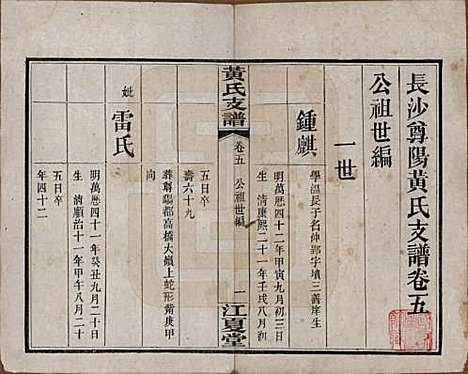 長沙尊陽黃氏支譜卷五
公祖世編
一世
鍾麒
學溫長子名仲郢字塤三善庠生
明萬歷四十二年甲寅九月初三日
生 清康熙二十一年壬戌八月初
黃氏支譜
卷五 公祖世編
一
江夏堂
五日卒
壽六十九
葬尊陽都高橋大嶺上蛇形簷庚甲
向
妣
雷氏
明萬歷四十一年癸丑九月二十日
生 清順治十一年甲午八月二十
五日卒
年四十二